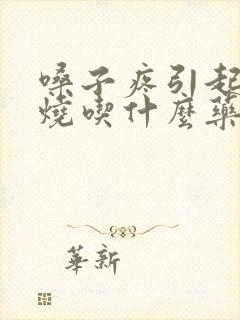 嗓子疼引起
燒喫什麼藥
華新